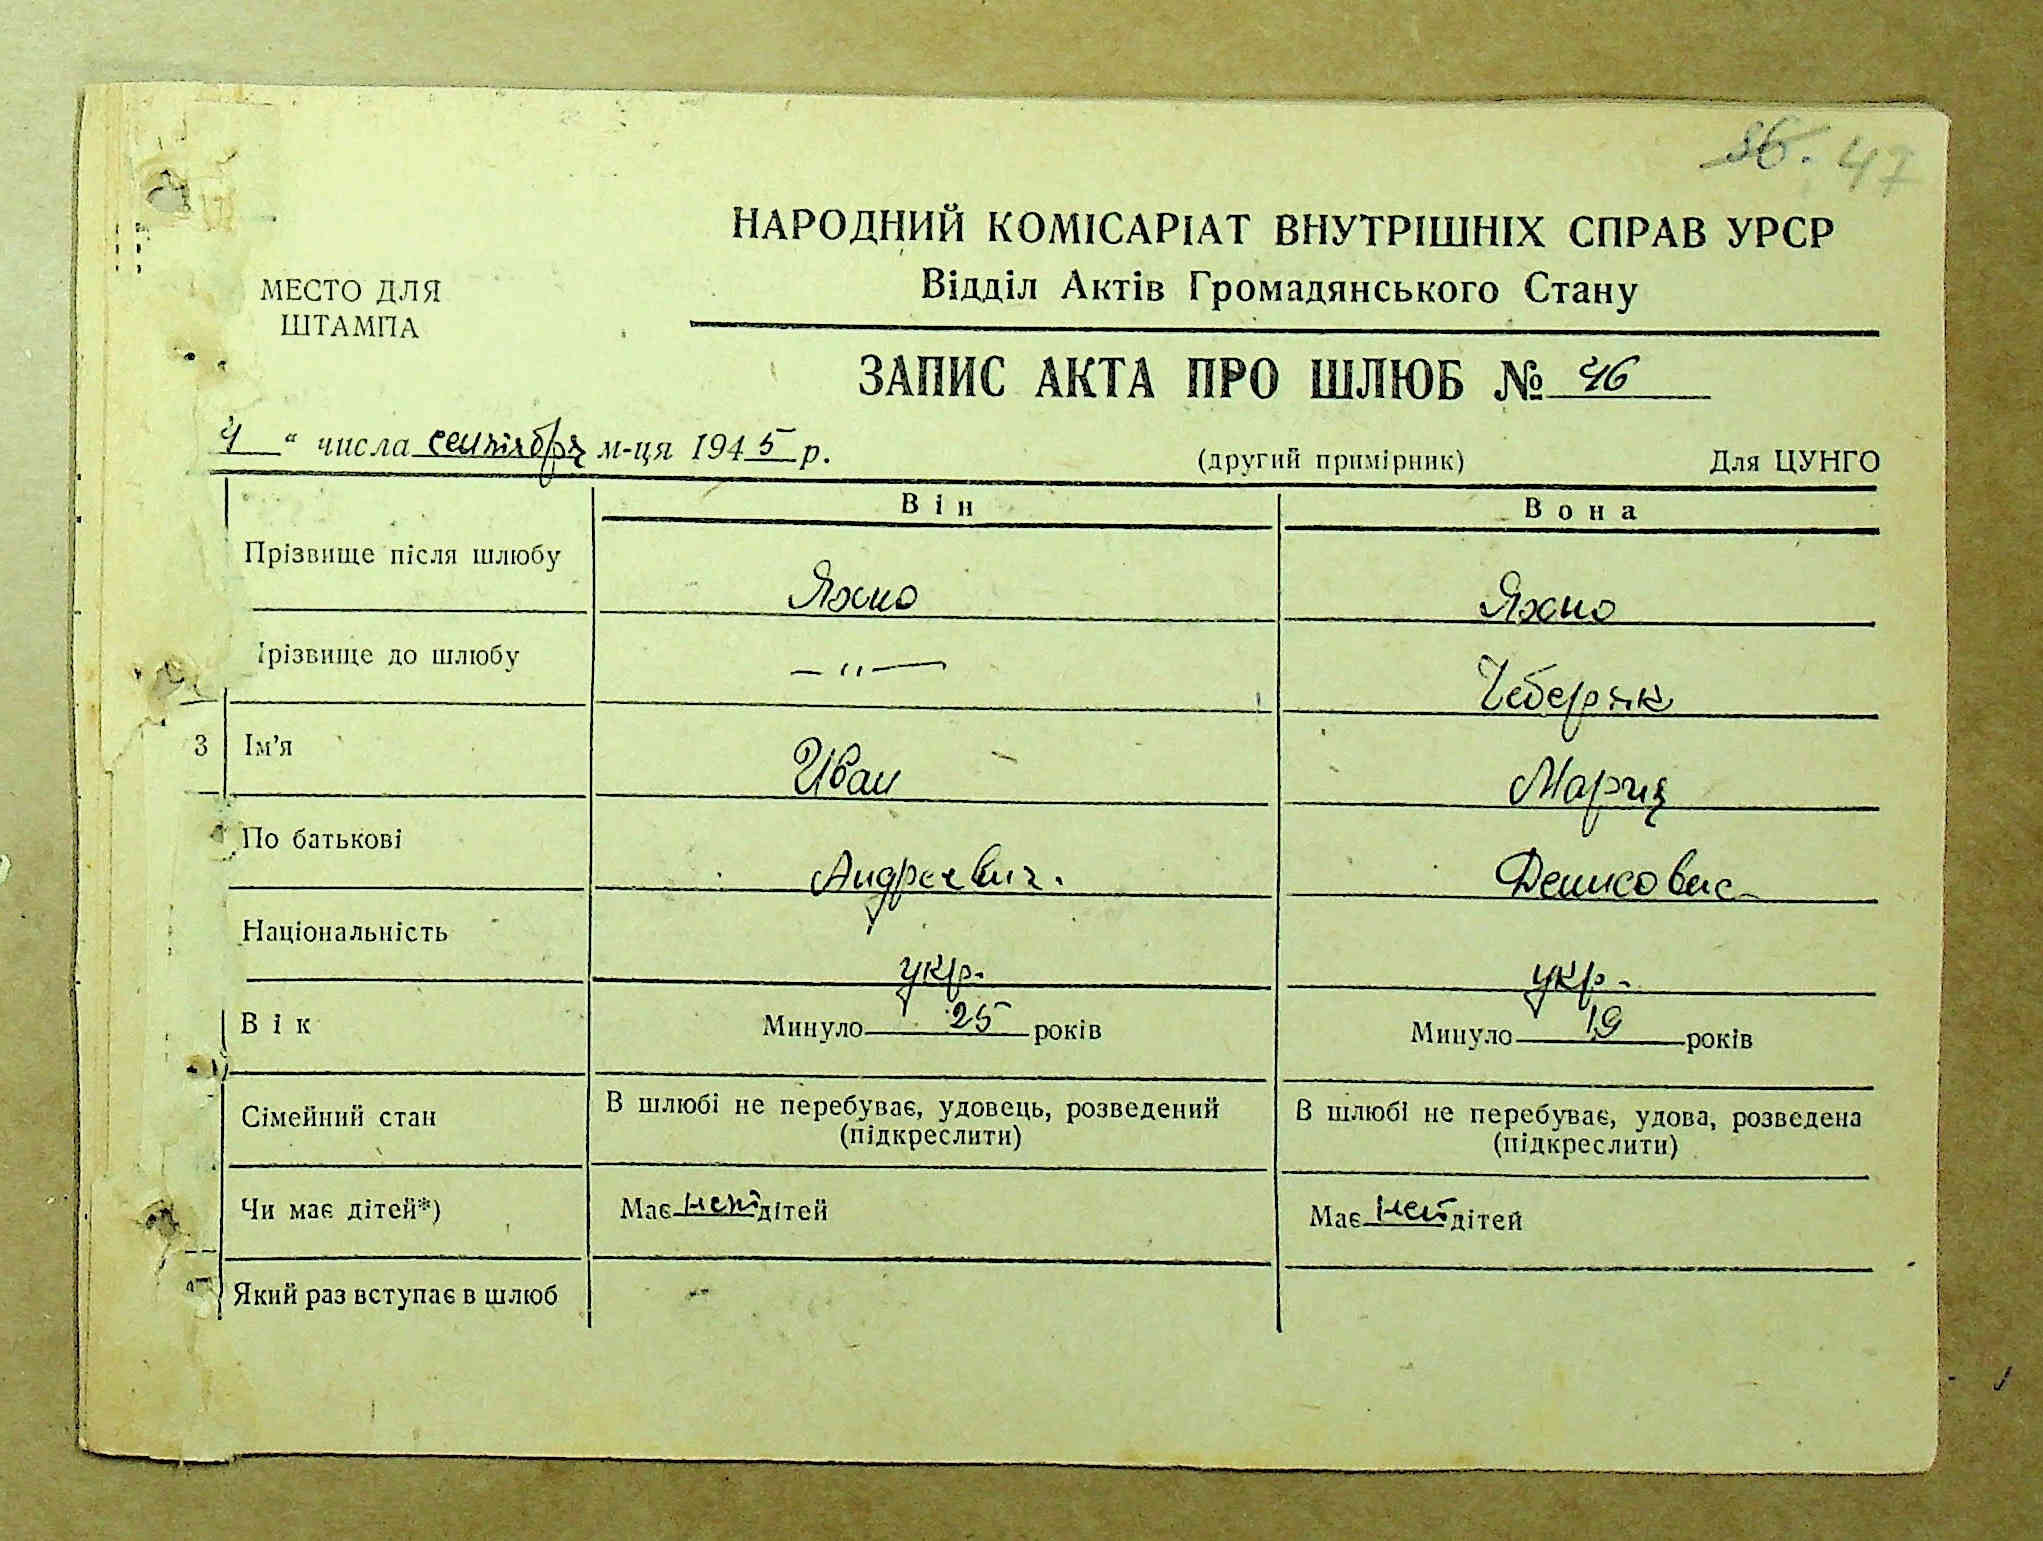 36. 47
НАРОДНИЙ КОМІСАРІАТ ВНУТРІШНІХ СПРАВ УРСР
Відділ Актів Громадянського Стану
МЕСТО ДЛЯ
ШТАМПА
ЗАПИС АКТА ПРО ШЛЮБ № 46
4 " числа сентября м-ця 1945 р.
(другий примірник) Для ЦУНГО
Він Вона
Прізвище після шлюбу Яхно Яхно
Прізвище до шлюбу — " — Чеберяк
3 Ім'я Иван Мария
По батькові Андреевич. Денисовна
Національність укр. укр.
Вік Минуло 25 років Минуло 19 років
Сімейний стан В шлюбі не перебуває, удовець, розведений (підкреслити) В шлюбі не перебуває, удова, розведена (підкреслити)
Чи має дітей*) Має нет дітей Має нет дітей
Який раз вступає в шлюб